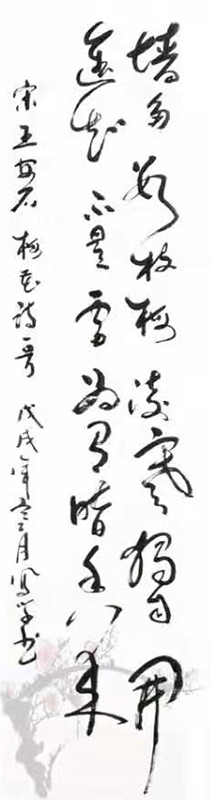 墙角数枝梅凌寒独自開
遥知不是雪为有暗香来
宋王安石梅花诗一首 戊戌年 月 书